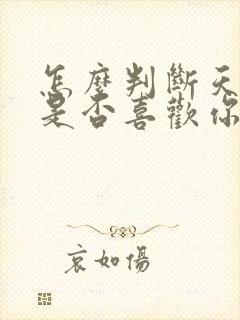 怎麼判斷天
是否喜歡你
哀如傷